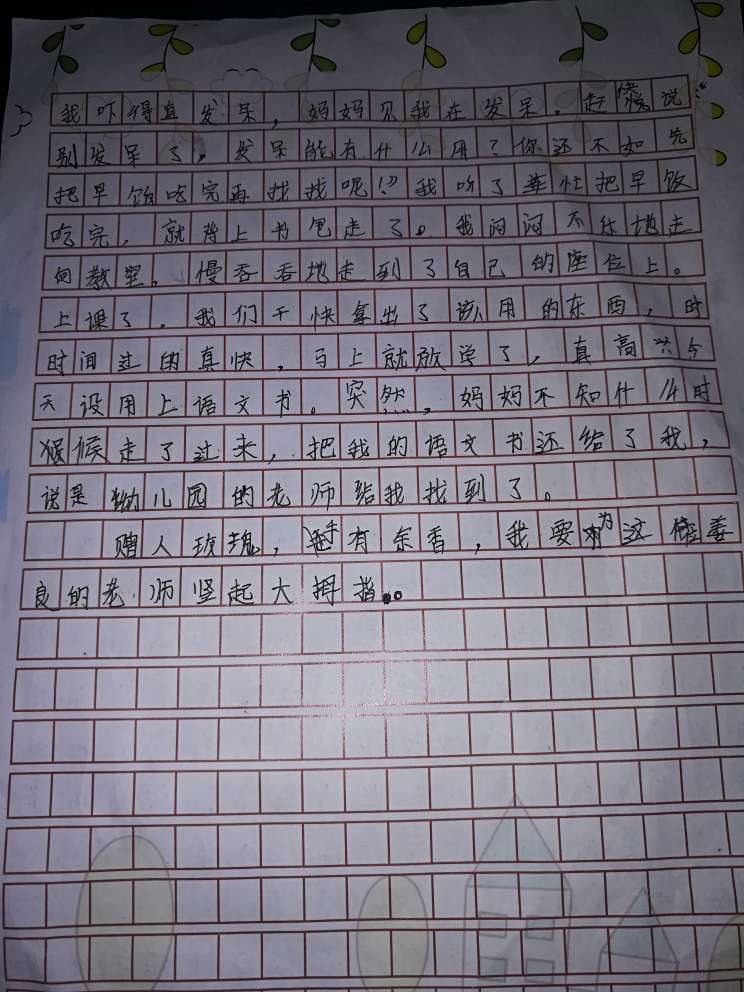 我吓得直发呆，妈妈见我在发呆，赶快说：“
别发呆了，发呆能有什么用？你还不如先
把早饭吃完再找找呢！”我听了连忙把早饭
吃完，就背上书包走了。我闷闷不乐地走
向教室，慢吞吞地走到了自己的座位上。
上课了，我们干快拿出了该用的东西，时
时间过的真快，马上就放学了，真高兴今
天没用上语文书。突然，妈妈不知什么时
候走了过来，把我的语文书还给了我，
说是幼儿园的老师给我找到了。
赠人玫瑰，手有余香，我要为这位善
良的老师竖起大拇指。